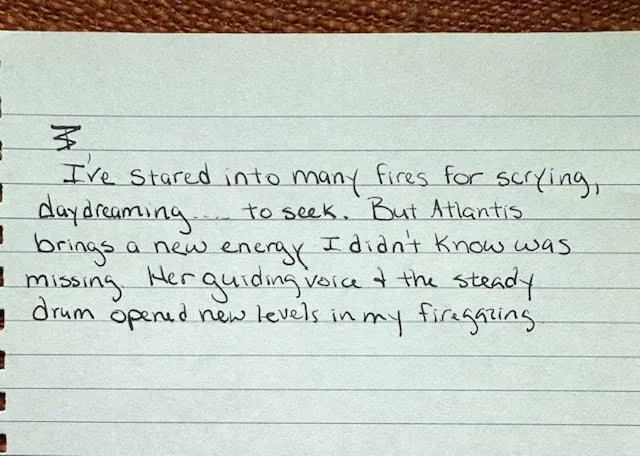 I've stared into many fires for scrying,
daydreaming.... to seek. But Atlantis
brings a new energy I didn't know was
missing. Her guiding voice & the steady
drum opened new levels in my firegazing